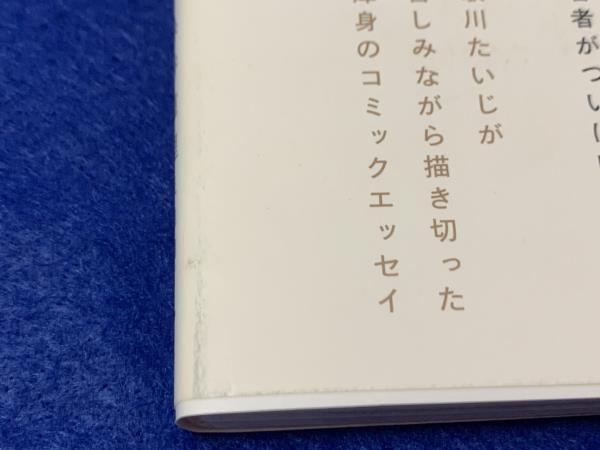 者がついに
川たいじが
しみながら描き切った
身のコミックエッセイ